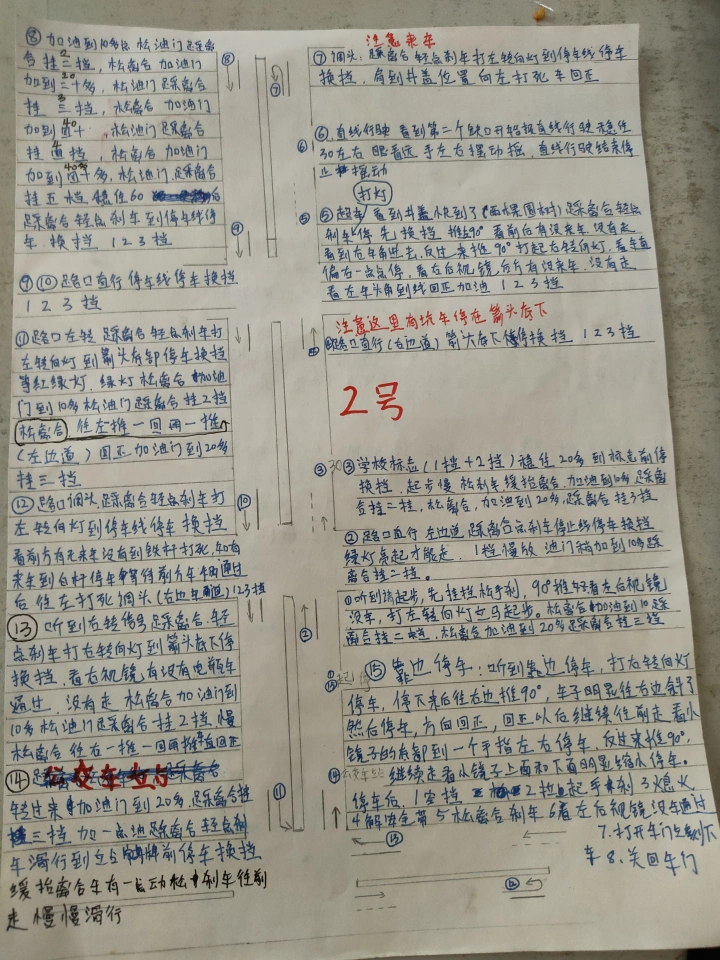 ⑧加油到10多码 松油门 踩离合
挂二挡, 松离合 加油门
加到二十多, 松油门 踩离合
挂三挡, 松离合 加油门
加到四十 松油门 踩离合
挂四挡, 松离合 加油门
加到四十多, 松油门 踩离合
挂五挡 稳住60
踩离合 轻点刹车 到停车线停
车. 换挡 1 2 3 挡
⑨⑩路口直行 停车线停车换挡
1 2 3 挡
⑪路口左转 踩离合 轻点刹车打
左转向灯 到箭头底部停车换挡
等红绿灯. 绿灯 松离合 加油
门到10多 松油门 踩离合 挂2挡
松离合 往左推一回再一推
(左边道) 回正 加油门到20多
挂三挡
⑫路口调头. 踩离合 轻点刹车打
左转向灯 到停车线停车 换挡
看前方有没来车 没有到铁杆打死, 如有
来车到白杆停车等待前方车辆通过
后往左打死调头 (右边车道) 123挡
⑬听到右转信号 踩离合. 轻
点刹车打右转向灯到箭头底下停
换挡. 看右视镜有没有电瓶车
通过, 没有走 松离合加油门到
10多松油门踩离合挂2挡, 慢
松离合往右一推一回再推 回正
⑭ 公交车站点
转过来加油门到20多. 踩离合挂
三挡 加一点油 踩离合 轻点刹
车滑行到站点牌前停车换挡
缓抬离合车有一点动松刹车往前
走慢慢滑行
⑧
⑨
⑩
⑪
⑦
⑥
⑤
④
③
30
②
①
⑮
⑭公交车站
⑬
⑫
注意来车
⑦调头: 踩离合 轻点刹车打左转向灯到停车线停车
换挡. 肩到井盖位置 向左打死 车回正
⑥. 直线行驶 看到第二个缺口开始报直线行驶 稳住
30左右 眼看远 手左右摆动摇, 直线行驶结束停
止摇动
打灯
⑤超车: 看到井盖快到了 踩离合 轻点
刹车停 先换挡 推90° 看前后有没来车 没有走
看到右车角进去, 反过来推90° 打起右转向灯. 看车直
偏右一点点停, 看右后视镜后方有没来车. 没有走
看左车头角到线回正加油 1 2 3 挡
注意这里有坑车停在箭头底下
路口直行 (右边道) 箭头底下停车换挡 1 2 3 挡
2号
③学校标志 (1挡+2挡) 稳住20多到标志前停
换挡. 起步慢 松刹车缓抬离合. 加油到10多踩离
合挂二挡, 松离合, 加油到20多, 踩离合挂3挡
②路口直行 左边道, 踩离合 点刹车 停止线停车换挡
绿灯亮起才能走. 1挡慢放 油门稍加到10多踩
离合挂二挡。
①听到请起步, 先挂挡松手刹, 90°推 看左后视镜
没车, 打左转向灯立马起步。松离合加油到10踩
离合挂二挡, 松离合加油到20多踩离合挂三挡
⑮靠边停车: 听到靠边停车, 打右转向灯
停车, 停下来后往右边推90°, 车子明显往右边斜了
然后停车, 方向回正, 回正以后继续往前走看小
镜子的底部到一个手指左右停车. 反过来推90°,
继续走看小镜子上面和下面明显缩小停车。
停车后. 1空挡 2拉起手刹 3熄火
4解安全带 5松离合刹车 6看左后视镜没车通过
7. 打开车门 下
车 8. 关回车门